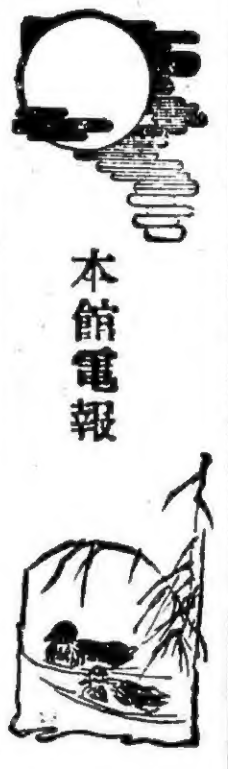 本館電報